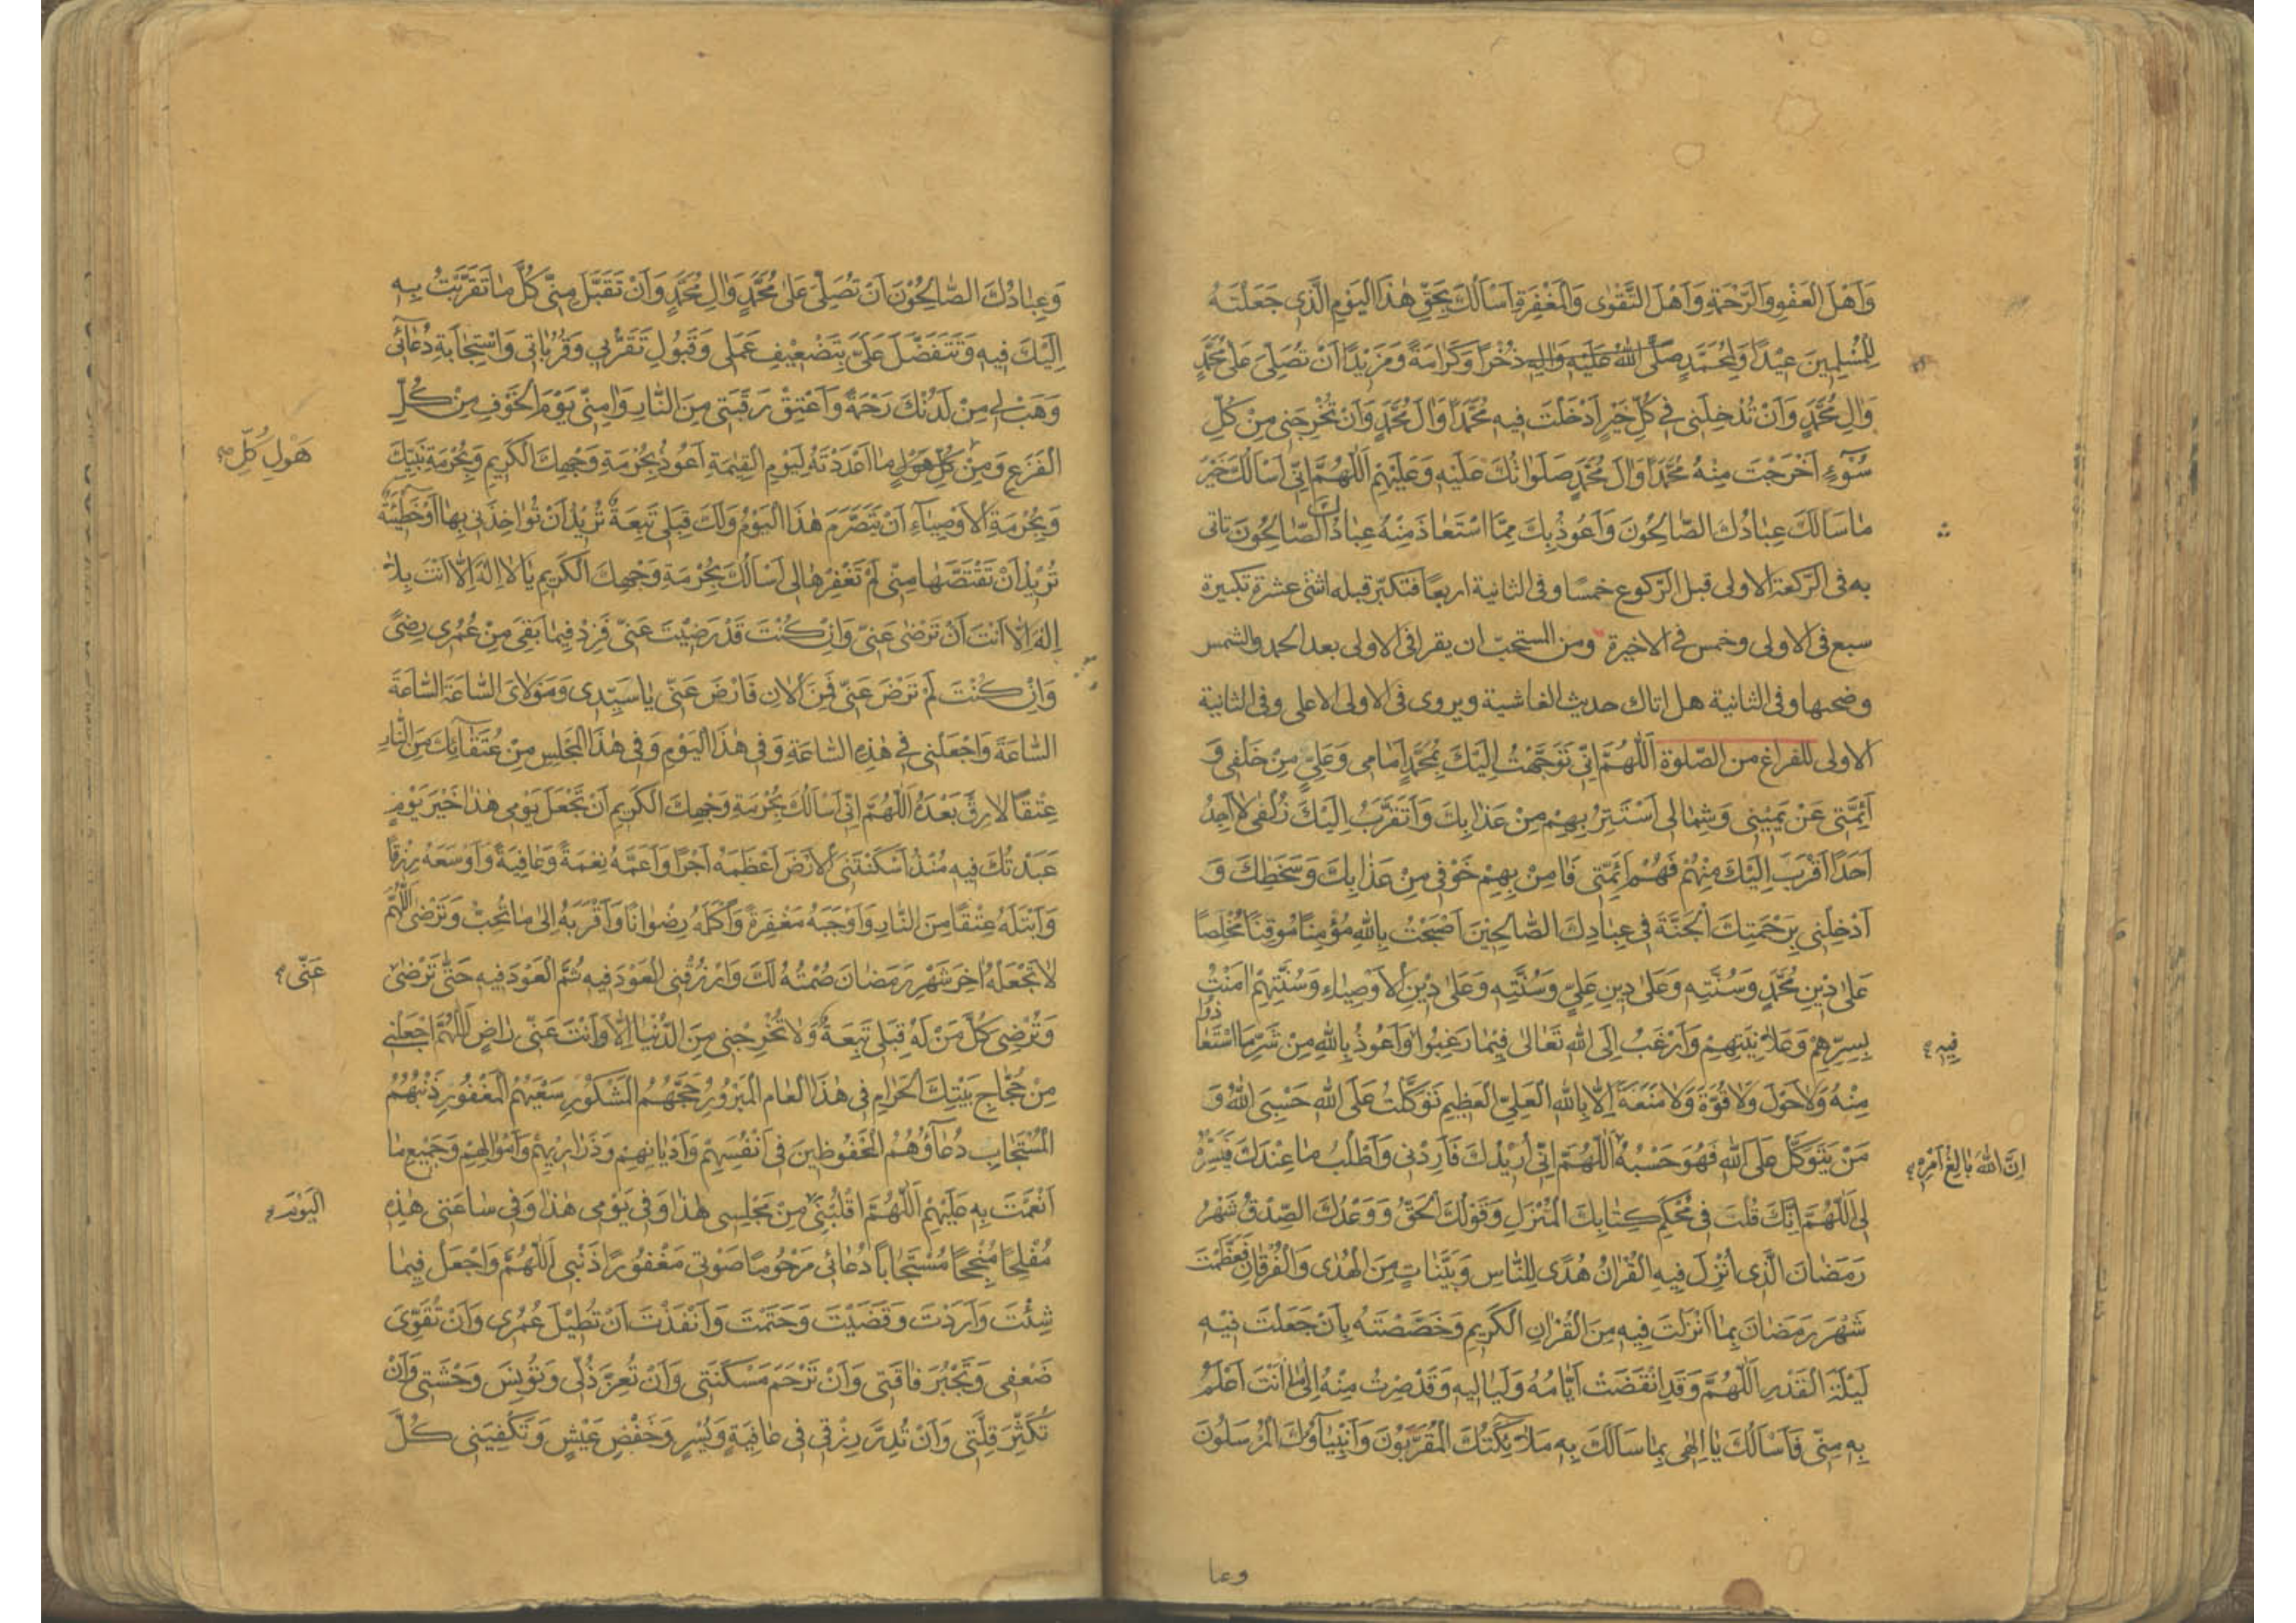 وَاَهْلَ الْعَفْوِ وَالرَّحْمَةِ وَاَهْلَ التَّقْوٰى وَالْمَغْفِرَةِ اَسْاَلُكَ بِحَقِّ هٰذَا الْيَوْمِ الَّذِى جَعَلْتَهُ
لِلْمُسْلِمِينَ عِيْدًا وَلِمُحَمَّدٍ صَلَّى اللهُ عَلَيْهِ وَالِهِ ذُخْرًا وَكَرَامَةً وَمَزِيْدًا اَنْ تُصَلِّىَ عَلٰى مُحَمَّدٍ
وَالِ مُحَمَّدٍ وَاَنْ تُدْخِلَنِى فِى كُلِّ خَيْرٍ اَدْخَلْتَ فِيهِ مُحَمَّدًا وَالَ مُحَمَّدٍ وَاَنْ تُخْرِجَنِى مِنْ كُلِّ
سُوْءٍ اَخْرَجْتَ مِنْهُ مُحَمَّدًا وَالَ مُحَمَّدٍ صَلَوَاتُكَ عَلَيْهِ وَعَلَيْهِمْ اَللّٰهُمَّ اِنِّى اَسْاَلُكَ خَيْرَ
مٰا سَاَلَكَ عِبٰادُكَ الصّٰالِحُونَ وَاَعُوذُ بِكَ مِمَّا اسْتَعٰاذَ مِنْهُ عِبٰادُكَ الصّٰالِحُونَ تاتى
به فى الرّكعة الاولى قبل الرّكوع خمسًا وفى الثانية اربعًا فتكبّر قبله اثنتى عشرة تكبيرة
سبع فى الاولى وخمس فى الاخيرة ومن المستحبّ ان يقرا فى الاولى بعد الحمد والشمس
وضحيها وفى الثانية هل اتاك حديث الغاشية ويروى فى الاولى الاعلى وفى الثانية
الاولى للفراغ من الصّلوة اَللّٰهُمَّ اِنِّى تَوَجَّهْتُ اِلَيْكَ بِمُحَمَّدٍ اَمٰامِى وَعَلِىٍّ مِنْ خَلْفِى وَ
اَئِمَّتِى عَنْ يَمِيْنِى وَشِمٰالِى اَسْتَتِرُ بِهِمْ مِنْ عَذٰابِكَ وَاَتَقَرَّبُ اِلَيْكَ زُلْفٰى لٰا اَجِدُ
اَحَدًا اَقْرَبَ اِلَيْكَ مِنْهُمْ فَهُمْ اَئِمَّتِى فَاٰمِنْ بِهِمْ خَوْفِى مِنْ عَذٰابِكَ وَسَخَطِكَ وَ
اَدْخِلْنِى بِرَحْمَتِكَ الْجَنَّةَ فِى عِبٰادِكَ الصّٰالِحِيْنَ اَصْبَحْتُ بِاللهِ مُؤْمِنًا مُوقِنًا مُخْلِصًا
عَلٰى دِيْنِ مُحَمَّدٍ وَسُنَّتِهِ وَعَلٰى دِينِ عَلِىٍّ وَسُنَّتِهِ وَعَلٰى دِيْنِ الْاَوْصِيٰاءِ وَسُنَّتِهِمْ اٰمَنْتُ
بِسِرِّهِمْ وَعَلٰانِيَتِهِمْ وَاَرْغَبُ اِلَى اللهِ تَعٰالٰى فِيْمٰا رَغِبُوا وَاَعُوذُ بِاللهِ مِنْ شَرِّ مَا اسْتَعٰاذُوا
فِيهِ
مِنْهُ وَلٰا حَوْلَ وَلٰا قُوَّةَ وَلٰا مَنَعَةَ اِلّٰا بِاللهِ الْعَلِىِّ الْعَظِيمِ تَوَكَّلْتُ عَلَى اللهِ حَسْبِىَ اللهُ وَ
مَنْ يَتَوَكَّلْ عَلَى اللهِ فَهُوَ حَسْبُهُ اَللّٰهُمَّ اِنِّى اُرِيْدُكَ فَاَرِدْنِى وَاَطْلُبُ مٰا عِنْدَكَ فَيَسِّرْهُ
اِنَّ اللهَ بٰالِغُ اَمْرِهِ
لِى اَللّٰهُمَّ اِنَّكَ قُلْتَ فِى مُحْكَمِ كِتٰابِكَ الْمُنْزَلِ وَقَوْلُكَ الْحَقُّ وَوَعْدُكَ الصِّدْقُ شَهْرُ
رَمَضٰانَ الَّذِى اُنْزِلَ فِيهِ الْقُرْاٰنُ هُدًى لِلنّٰاسِ وَبَيِّنٰاتٍ مِنَ الْهُدٰى وَالْفُرْقٰانِ فَعَظَّمْتَ
شَهْرَ رَمَضٰانَ بِمٰا اَنْزَلْتَ فِيهِ مِنَ الْقُرْاٰنِ الْكَرِيمِ وَخَصَّصْتَهُ بِاَنْ جَعَلْتَ فِيْهِ
لَيْلَةَ الْقَدْرِ اَللّٰهُمَّ وَقَدِ انْقَضَتْ اَيّٰامُهُ وَلَيٰالِيهِ وَقَدْ صِرْتُ مِنْهُ اِلٰى مٰا اَنْتَ اَعْلَمُ
بِهِ مِنِّى فَاَسْاَلُكَ يٰا اِلٰهِى بِمٰا سَاَلَكَ بِهِ مَلٰائِكَتُكَ الْمُقَرَّبُونَ وَاَنْبِيٰاؤُكَ الْمُرْسَلُونَ
وعبا
وَعِبٰادُكَ الصّٰالِحُوْنَ اَنْ تُصَلِّىَ عَلٰى مُحَمَّدٍ وَالِ مُحَمَّدٍ وَاَنْ تَقَبَّلَ مِنِّى كُلَّ مٰا تَقَرَّبْتُ بِهِ
اِلَيْكَ فِيهِ وَتَتَفَضَّلَ عَلَىَّ بِتَضْعِيْفِ عَمَلِى وَقَبُولِ تَقَرُّبِى وَقُرُبٰاتِى وَاسْتِجٰابَةِ دُعٰائِى
وَهَبْ لِى مِنْ لَدُنْكَ رَحْمَةً وَاَعْتِقْ رَقَبَتِى مِنَ النّٰارِ وَاٰمِنِّى يَوْمَ الْخَوْفِ مِنْ كُلِّ
الْفَزَعِ وَمِنْ كُلِّ هَوْلٍ مٰا اَعْدَدْتَهُ لِيَوْمِ الْقِيٰمَةِ اَعُوذُ بِحُرْمَةِ وَجْهِكَ الْكَرِيمِ وَبِحُرْمَةِ نَبِيِّكَ
هَوْلِ كُلِّ
وَبِحُرْمَةِ الْاَوْصِيٰاءِ اَنْ يَتَصَرَّمَ هٰذَا الْيَوْمُ وَلَكَ قِبَلِى تَبِعَةٌ تُرِيْدُ اَنْ تُؤٰاخِذَنِى بِهٰا اَوْ خَطِيْئَةٌ
تُرِيْدُ اَنْ تَقْتَصَّهٰا مِنِّى لَمْ تَغْفِرْهٰا لِى اَسْاَلُكَ بِحُرْمَةِ وَجْهِكَ الْكَرِيمِ يٰا لٰا اِلٰهَ اِلّٰا اَنْتَ بِلٰا
اِلٰهَ اِلّٰا اَنْتَ اَنْ تَرْضٰى عَنِّى وَاِنْ كُنْتَ قَدْ رَضِيْتَ عَنِّى فَزِدْ فِيمٰا بَقِىَ مِنْ عُمُرِى رِضًى
وَاِنْ كُنْتَ لَمْ تَرْضَ عَنِّى فَمِنَ الْاٰنِ فَارْضَ عَنِّى يٰا سَيِّدِى وَمَوْلٰاىَ السّٰاعَةَ السّٰاعَةَ
السّٰاعَةَ وَاجْعَلْنِى فِى هٰذِهِ السّٰاعَةِ وَفِى هٰذَا الْيَوْمِ وَفِى هٰذَا الْمَجْلِسِ مِنْ عُتَقٰائِكَ مِنَ النّٰارِ
عِتْقًا لٰا رِقَّ بَعْدَهُ اَللّٰهُمَّ اِنِّى اَسْاَلُكَ بِحُرْمَةِ وَجْهِكَ الْكَرِيمِ اَنْ تَجْعَلَ يَوْمِى هٰذٰا خَيْرَ يَوْمٍ
عَبَدْتُكَ فِيهِ مُنْذُ اَسْكَنْتَنِى الْاَرْضَ اَعْظَمَهُ اَجْرًا وَاَعَمَّهُ نِعْمَةً وَعٰافِيَةً وَاَوْسَعَهُ رِزْقًا
وَابْتَلَهُ عِتْقًا مِنَ النّٰارِ وَاَوْجَبَهُ مَغْفِرَةً وَاَكْمَلَهُ رِضْوٰانًا وَاَقْرَبَهُ اِلٰى مٰا تُحِبُّ وَتَرْضٰى اَللّٰهُمَّ
لٰا تَجْعَلْهُ اٰخِرَ شَهْرِ رَمَضٰانَ صُمْتُهُ لَكَ وَارْزُقْنِى الْعَوْدَ فِيهِ ثُمَّ الْعَوْدَ فِيهِ حَتّٰى تَرْضٰى
عَنِّى
وَتُرْضِىَ كُلَّ مَنْ لَهُ قِبَلِى تَبِعَةٌ وَلٰا تُخْرِجْنِى مِنَ الدُّنْيٰا اِلّٰا وَاَنْتَ عَنِّى رٰاضٍ اَللّٰهُمَّ اجْعَلْنِى
مِنْ حُجّٰاجِ بَيْتِكَ الْحَرٰامِ فِى هٰذَا الْعٰامِ الْمَبْرُورِ حَجُّهُمُ الْمَشْكُورِ سَعْيُهُمُ الْمَغْفُورِ ذَنْبُهُمُ
الْمُسْتَجٰابِ دُعٰاؤُهُمُ الْمَحْفُوظِينَ فِى اَنْفُسِهِمْ وَاَدْيٰانِهِمْ وَذَرٰارِيْهِمْ وَاَمْوٰالِهِمْ وَجَمِيْعِ مٰا
اَنْعَمْتَ بِهِ عَلَيْهِمْ اَللّٰهُمَّ اقْلِبْنِى مِنْ مَجْلِسِى هٰذٰا وَفِى يَوْمِى هٰذٰا وَفِى سٰاعَتِى هٰذِهِ
الْيَوْمَ
مُفْلِحًا مُنْجِحًا مُسْتَجٰابًا دُعٰائِى مَرْحُومًا صَوْتِى مَغْفُورًا ذَنْبِى اَللّٰهُمَّ وَاجْعَلْ فِيمٰا
شِئْتَ وَاَرَدْتَ وَقَضَيْتَ وَحَتَمْتَ وَاَنْفَذْتَ اَنْ تُطِيْلَ عُمُرِى وَاَنْ تُقَوِّىَ
ضَعْفِى وَتَجْبُرَ فٰاقَتِى وَاَنْ تَرْحَمَ مَسْكَنَتِى وَاَنْ تُعِزَّ ذُلِّى وَتُؤْنِسَ وَحْشَتِى وَاَنْ
تُكَثِّرَ قِلَّتِى وَاَنْ تُدِرَّ رِزْقِى فِى عٰافِيَةٍ وَيُسْرٍ وَخَفْضِ عَيْشٍ وَتَكْفِيَنِى كُلَّ